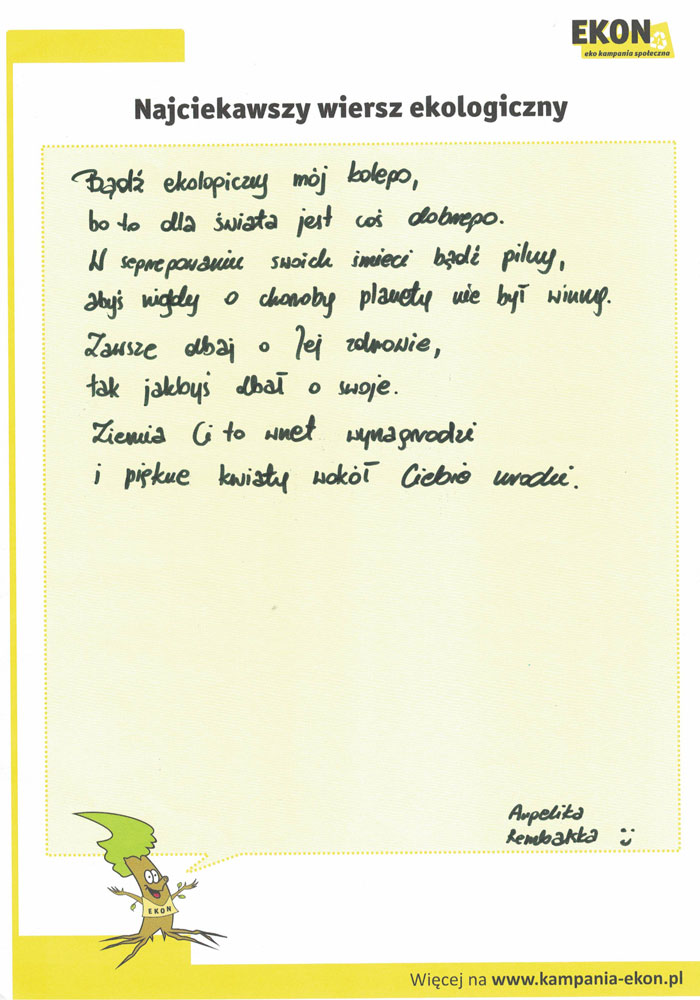 EKON
eko kampania społeczna
Najciekawszy wiersz ekologiczny
Bądź ekologiczny mój kolego,
bo to dla świata jest coś dobrego.
W segregowaniu swoich śmieci bądź pilny,
abyś nigdy o choroby planety nie był winny.
Zawsze dbaj o Jej zdrowie,
tak jakbyś dbał o swoje.
Ziemia Ci to wnet wynagrodzi
i piękne kwiaty wokół Ciebie urodzi.
Angelika
Rembakka :)
EKON
Więcej na www.kampania-ekon.pl